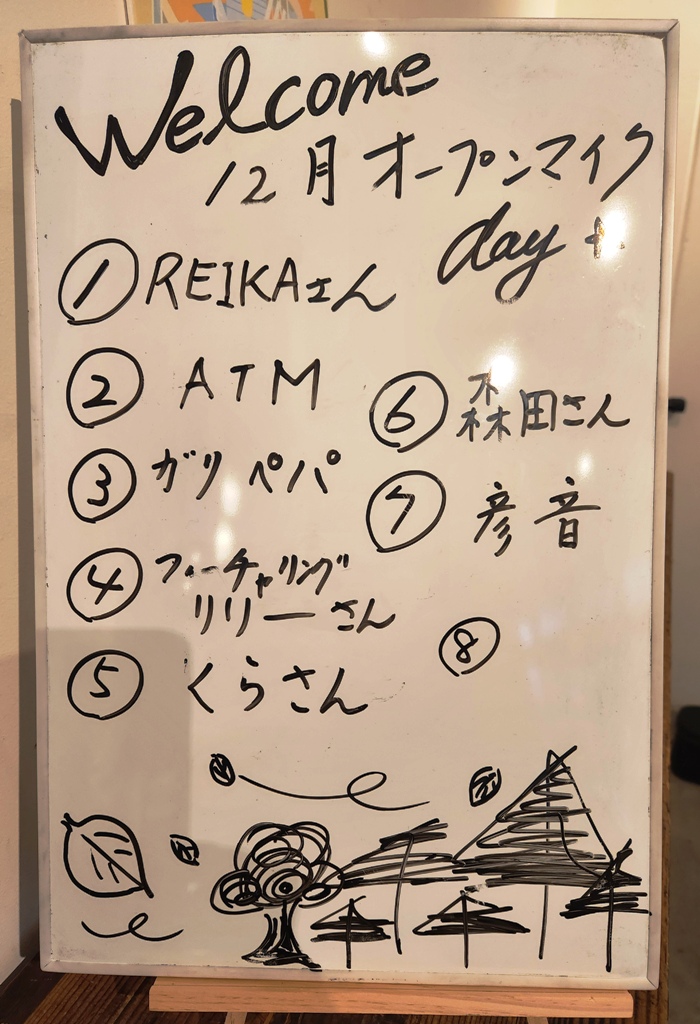 Welcome
12月 オープンマイク
day
① REIKAさん
② ATM
③ ガリ ペパ
④ フィーチャリング
リリーさん
⑤ くらさん
⑥ 森田さん
⑦ 彦音
⑧